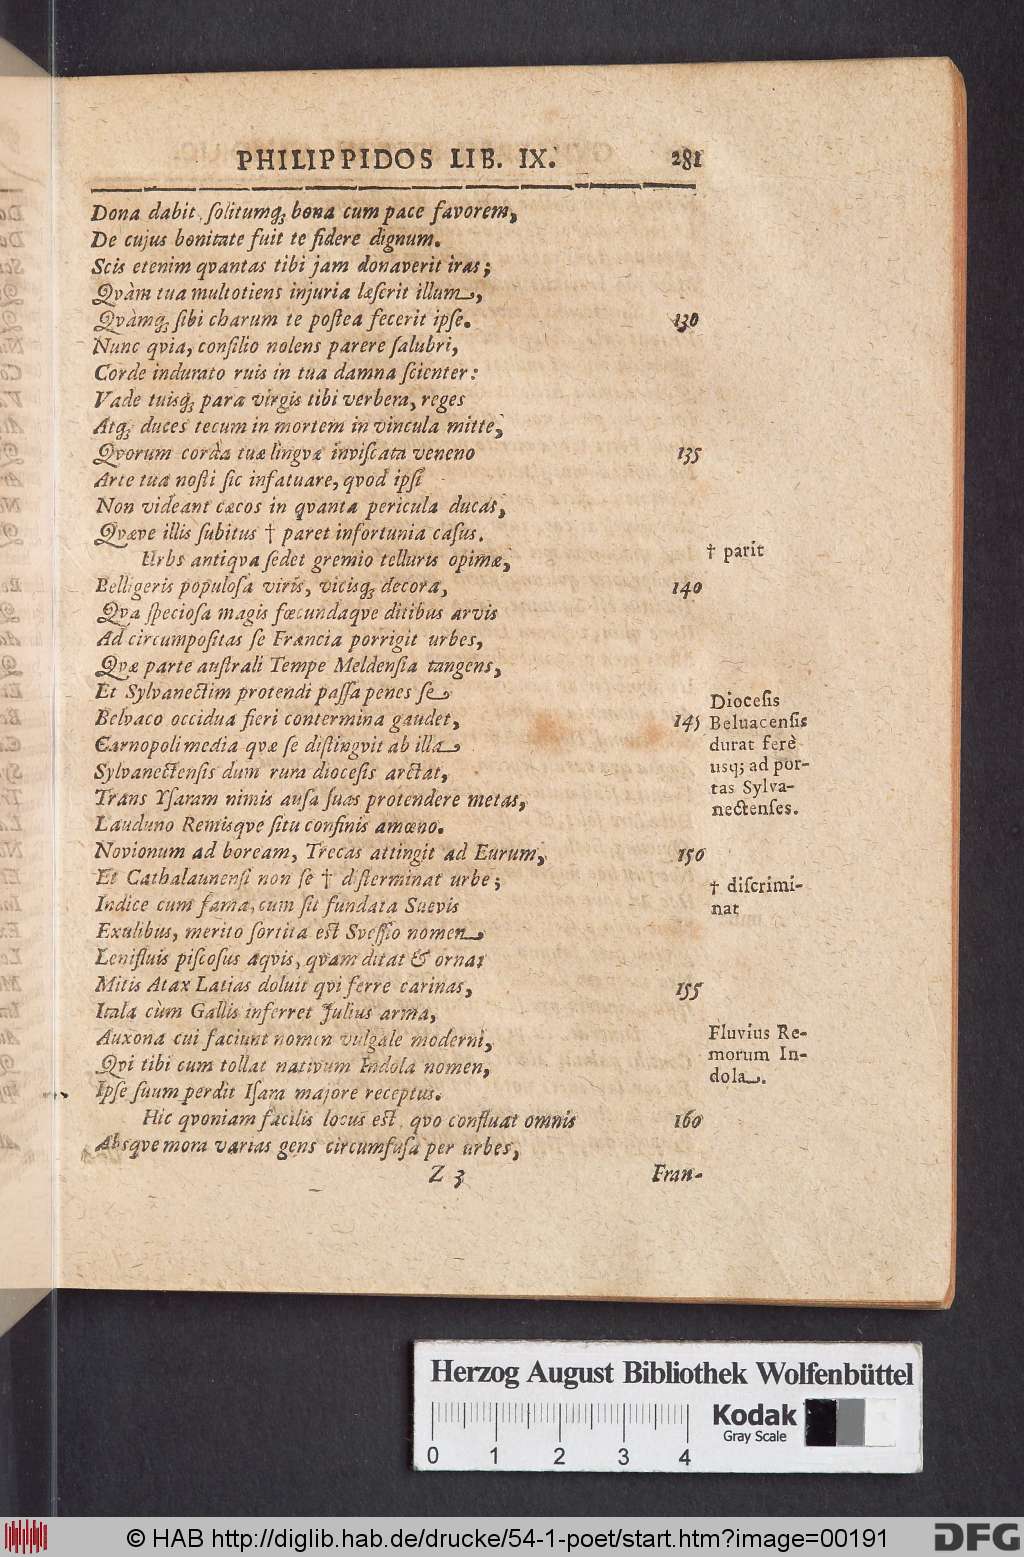 PHILIPPIDOS LIB. IX. 281
Dona dabit, solitumq; bona cum pace favorem,
De cujus bonitate fuit te fidere dignum.
Scis etenim qvantas tibi jam donaverit iras;
Qvàm tua multotiens injuria læserit illum,
Qvàmq; sibi charum te postea fecerit ipse. 130
Nunc qvia, consilio nolens parere salubri,
Corde indurato ruis in tua damna scienter:
Vade tuisq; para virgis tibi verbera, reges
Atq; duces tecum in mortem in vincula mitte,
Qvorum corda tuæ lingvæ inviscata veneno 135
Arte tua nosti sic infatuare, qvod ipsi
Non videant cæcos in qvanta pericula ducas,
Qvæve illis subitus † paret infortunia casus.
† parit
Urbs antiqva sedet gremio telluris opimæ,
Belligeris populosa viris, vicisq; decora, 140
Qva speciosa magis fœcundaqve ditibus arvis
Ad circumpositas se Francia porrigit urbes,
Qvæ parte australi Tempe Meldensia tangens,
Et Sylvanectim protendi passa penes se
Belvaco occidua fieri contermina gaudet, 145
Carnopoli media qvæ se distingvit ab illa
Sylvanectensis dum rura diocesis arctat,
Trans Ysaram nimis ausa suas protendere metas,
Diocesis
Beluacensis
durat ferè
usq; ad por-
tas Sylva-
nectenses.
Lauduno Remisqve situ confinis amœno.
Novionum ad boream, Trecas attingit ad Eurum, 150
Et Cathalaunensi non se † disterminat urbe;
† discrimi-
nat
Indice cum fama, cum sit fundata Suevis
Exulibus, merito sortita est Svessio nomen
Lenifluis piscosus aqvis, qvam ditat & ornat
Mitis Atax Latias doluit qvi ferre carinas, 155
Itala cùm Gallis inferret Julius arma,
Auxona cui faciunt nomen vulgale moderni,
Qvi tibi cum tollat nativum Indola nomen,
Ipse suum perdit Isara majore receptus.
Fluvius Re-
morum In-
dola.
Hic qvoniam facilis locus est, qvo confluat omnis 160
Absqve mora varias gens circumfusa per urbes,
Z 3 Fran-
Herzog August Bibliothek Wolfenbüttel
Kodak
Gray Scale
0 1 2 3 4
© HAB http://diglib.hab.de/drucke/54-1-poet/start.htm?image=00191
DFG